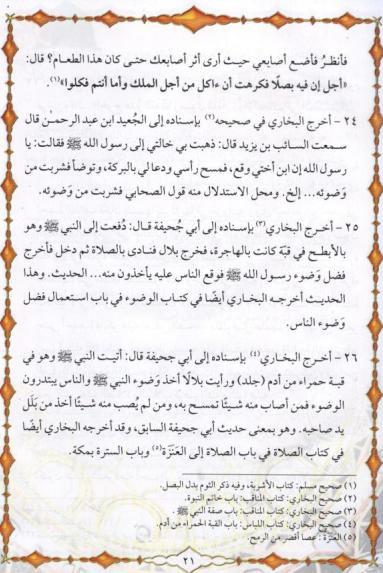 فأنظرُ فأضع أصابعي حيث أرى أثر أصابعك حتى كان هذا الطعام؟ قال:
«أجل إن فيه بصلًا فكرهت أن ءاكل من أجل الملك وأما أنتم فكلوا»(١).
٢٤ - أخرج البخاري في صحيحه(٢) بإسناده إلى الجُعيد ابن عبد الرحمٰن قال
سمعت السائب بن يزيد قال: ذهبت بي خالتي إلى رسول الله ﷺ فقالت: يا
رسول الله إن ابن أختي وقع، فمسح رأسي ودعا لي بالبركة، وتوضأ فشربت من
وَضوئه... إلخ. ومحل الاستدلال منه قول الصحابي فشربت من وَضوئه.
٢٥ - أخرج البخاري(٣) بإسناده إلى أبي جُحيفة قال: دُفعت إلى النبي ﷺ وهو
بالأبطح في قبّة كانت بالهاجرة، فخرج بلال فنادى بالصلاة ثم دخل فأخرج
فضل وَضوء رسول الله ﷺ فوقع الناس عليه يأخذون منه... الحديث. وهذا
الحديث أخرجه البخاري أيضًا في كتاب الوضوء في باب استعمال فضل
وَضوء الناس.
٢٦ - أخرج البخاري(٤) بإسناده إلى أبي جحيفة قال: أتيت النبي ﷺ وهو في
قبة حمراء من أدم (جلد) ورأيت بلالًا أخذ وَضوء النبي ﷺ والناس يبتدرون
الوضوء فمن أصاب منه شيئًا تمسح به، ومن لم يُصب منه شيئًا أخذ من بَلَل
يد صاحبه. وهو بمعنى حديث أبي جحيفة السابق، وقد أخرجه البخاري أيضًا
في كتاب الصلاة في باب الصلاة إلى العَنَزَة(٥) وباب السترة بمكة.
(١) صحيح مسلم: كتاب الأشربة، وفيه ذكر الثوم بدل البصل.
(٢) صحيح البخاري: كتاب المناقب: باب خاتم النبوة.
(٣) صحيح البخاري: كتاب المناقب: باب صفة النبي ﷺ.
(٤) صحيح البخاري: كتاب اللباس: باب القبة الحمراء من أدم.
(٥) العنزة: عصا أقصر من الرمح.
٢١